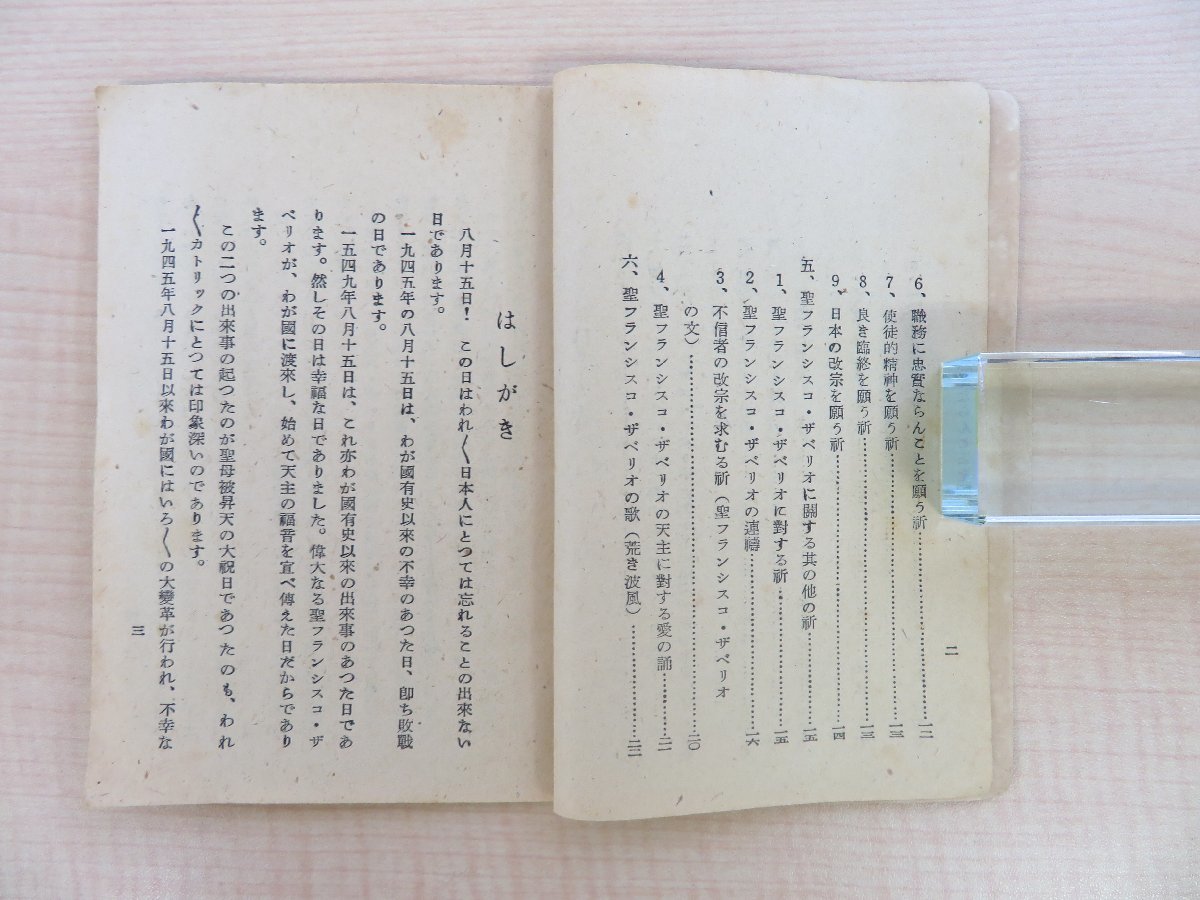 6、職務に忠實ならんことを願う祈…………一二
7、使徒的精神を願う祈…………一三
8、良き臨終を願う祈…………一三
9、日本の改宗を願う祈…………一四
五、聖フランシスコ・ザベリオに關する其の他の祈…………一五
1、聖フランシスコ・ザベリオに對する祈…………一五
2、聖フランシスコ・ザベリオの連禱…………一六
3、不信者の改宗を求むる祈（聖フランシスコ・ザベリオ
の文）…………二〇
4、聖フランシスコ・ザベリオの天主に對する愛の誦…………二一
六、聖フランシスコ・ザベリオの歌（荒き波風）…………二二
二
はしがき
八月十五日！　この日はわれ〱日本人にとつては忘れることの出來ない
日であります。
一九四五年の八月十五日は、わが國有史以來の不幸のあつた日、卽ち敗戰
の日であります。
一五四九年八月十五日は、これ亦わが國有史以來の出來事のあつた日であ
ります。然しその日は幸福な日でありました。偉大なる聖フランシスコ・ザ
ベリオが、わが國に渡來し、始めて天主の福音を宣べ傳えた日だからであり
ます。
この二つの出來事の起つたのが聖母被昇天の大祝日であつたのも、われ
〱カトリックにとつては印象深いのであります。
一九四五年八月十五日以來わが國にはいろ〱の大變革が行われ、不幸な
三